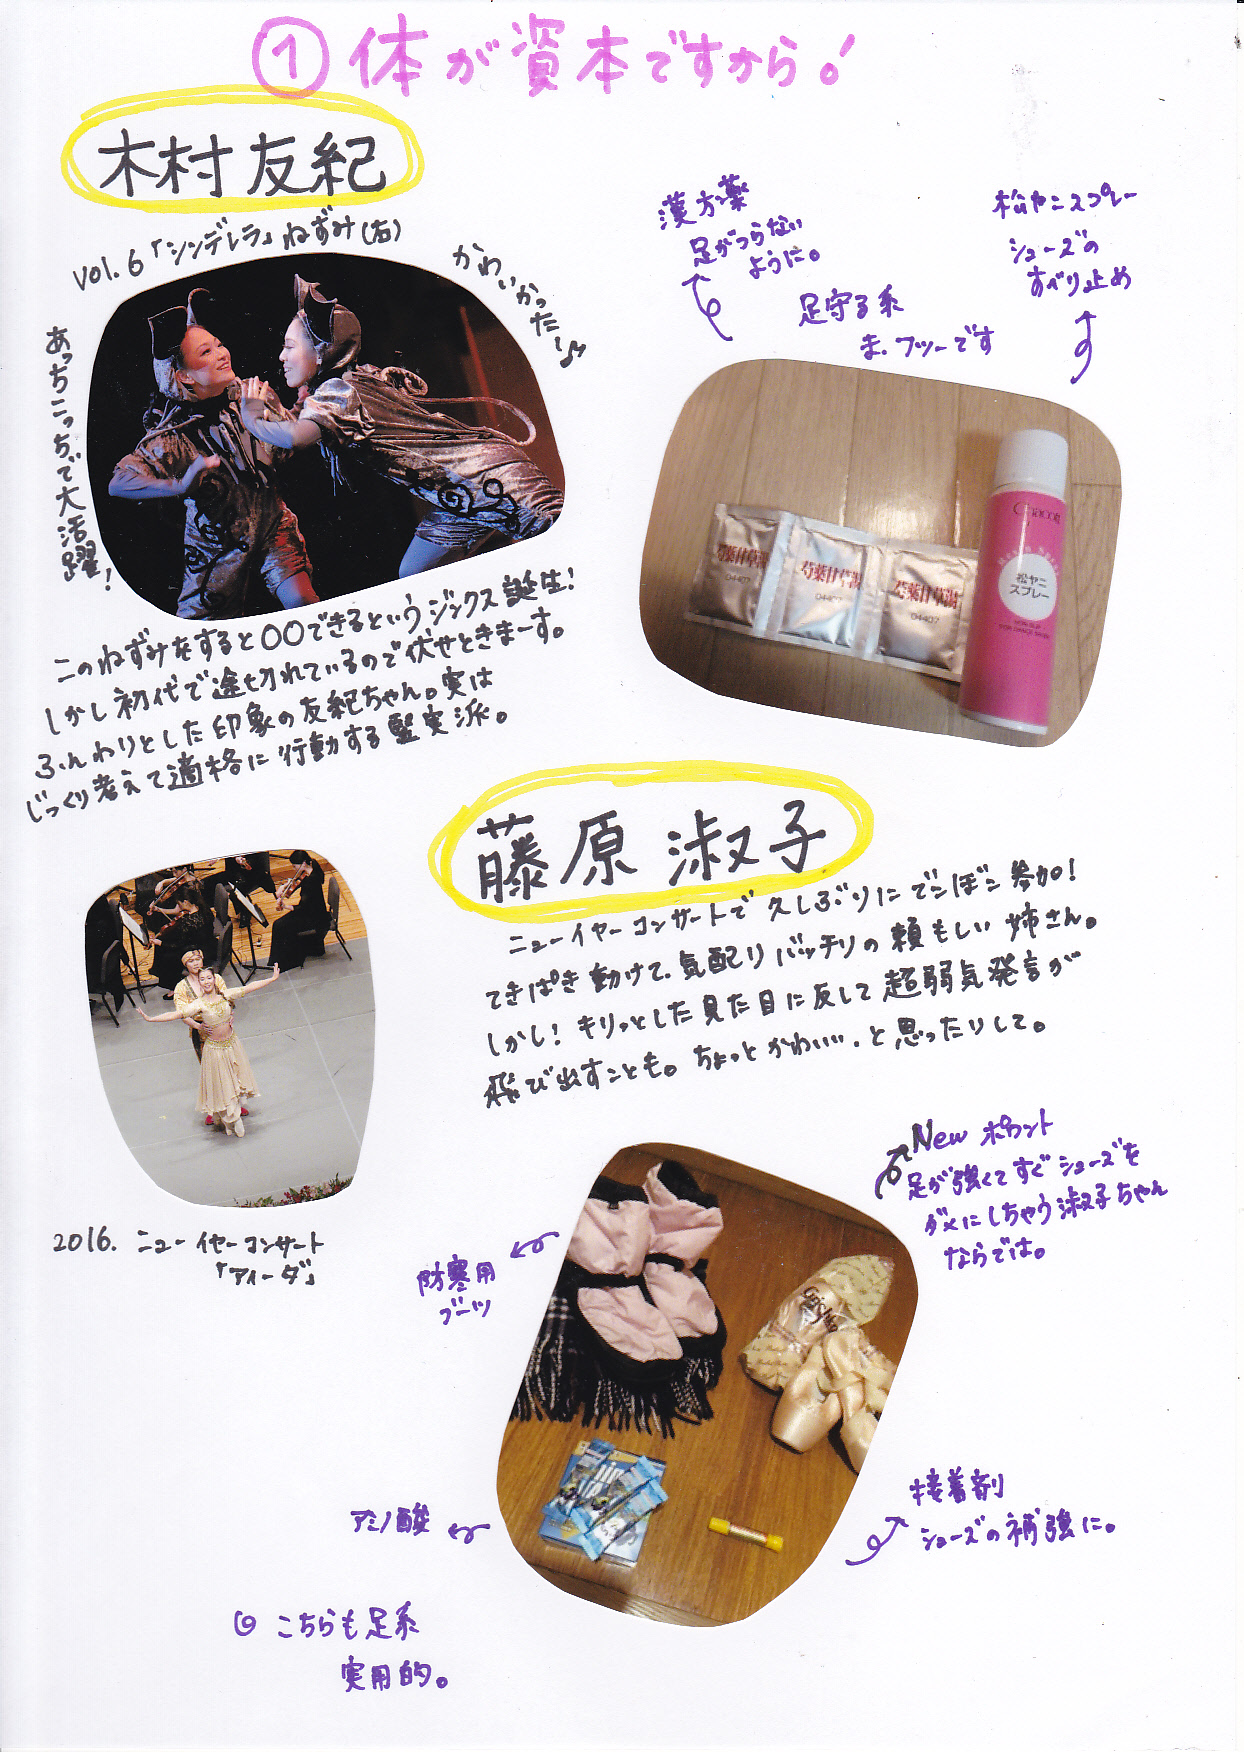 ① 体が資本ですから!
木村友紀
vol.6「シンデレラ」ねずみ(右)
かわいかったー♪
あっちこっちで大活躍!
このねずみをすると〇〇できるというジンクス誕生!
しかし初代で途切れているので伏せときまーす。
ふんわりとした印象の友紀ちゃん。実は
じっくり考えて適格に行動する堅実派。
漢方薬
足がつらない
ように。
足守る系
ま、フツーです
松ヤニスプレー
シューズの
すべり止め
芍薬甘草湯
04407
芍薬甘草湯
芍薬甘草湯
04407
Chacott
松ヤニ
スプレー
藤原 淑子
ニューイヤーコンサートで久しぶりにでこぼこ参加!
てきぱき動けて、気配りバッチリの頼もしい姉さん。
しかし! キリッとした見た目に反して超弱気発言が
飛び出すことも。ちょっとかわいい、と思ったりして。
2016. ニューイヤーコンサート
「アイーダ」
New ポワント
足が強くてすぐシューズを
ダメにしちゃう淑子ちゃん
ならでは。
防寒用
ブーツ
Grishko
アミノ酸
接着剤
シューズの補強に。
こちらも足系
実用的。